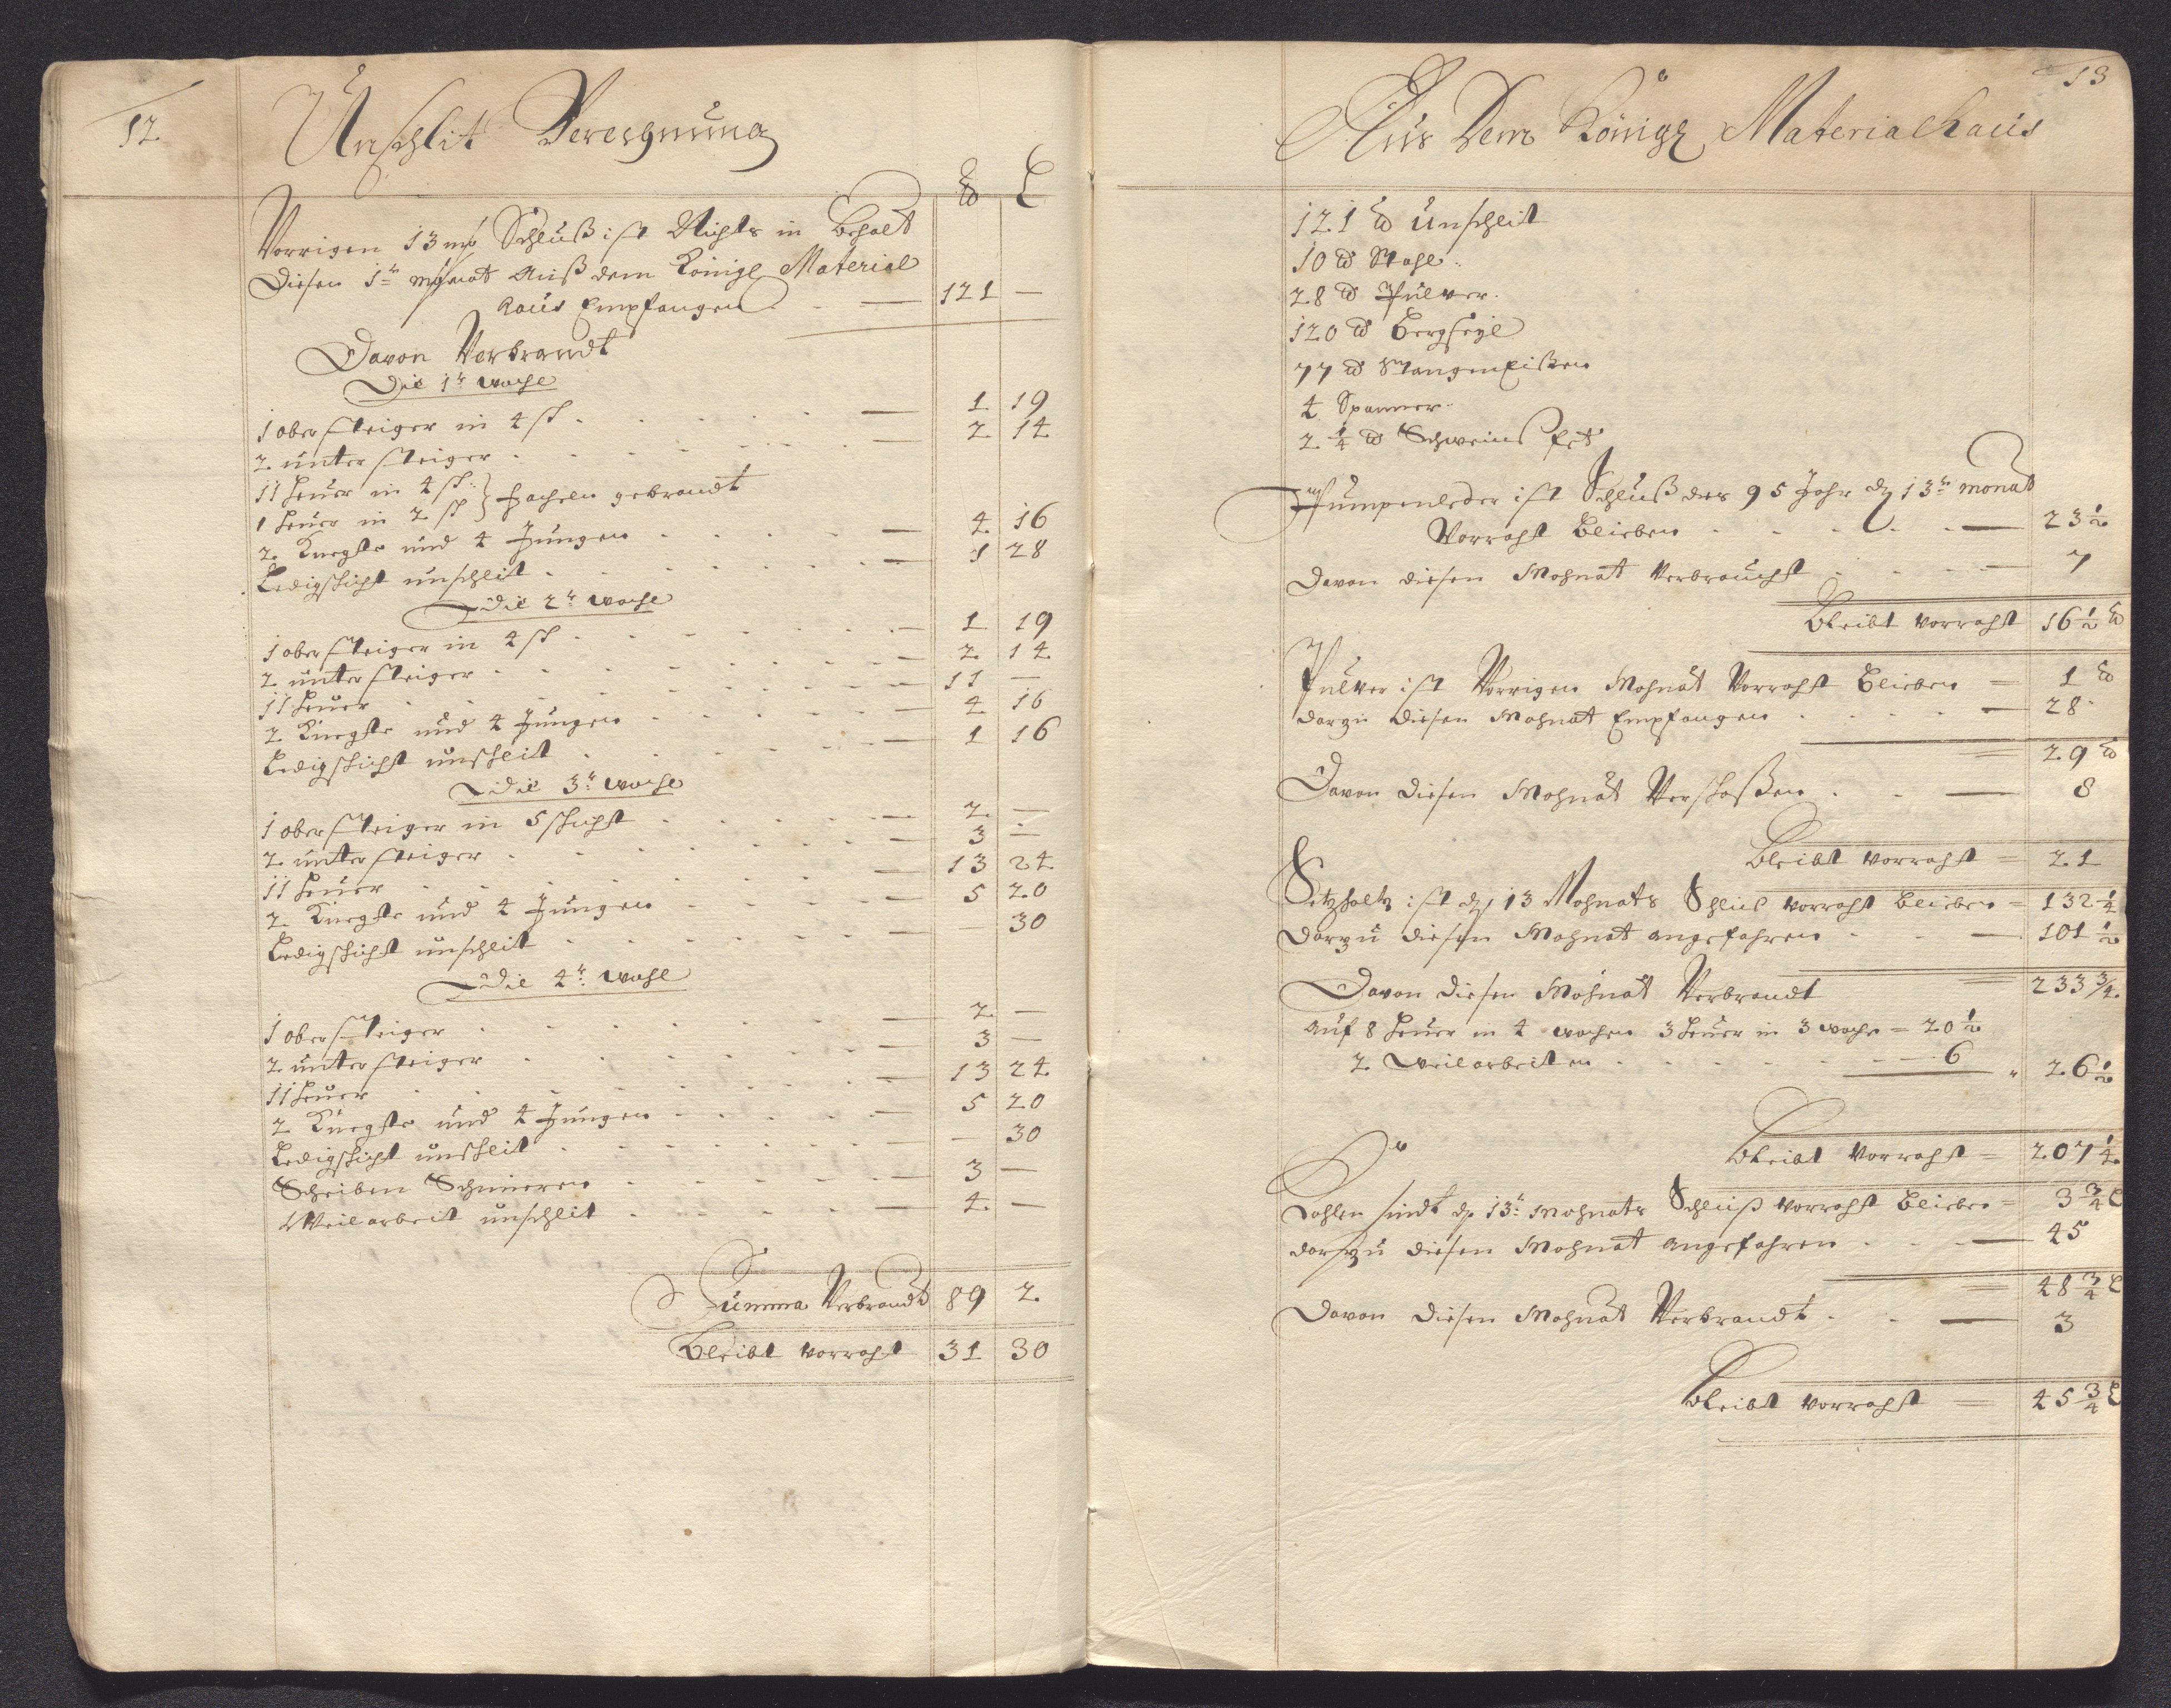 12.
Unschlit Berechnung
℔ L
Vorrigen 13 mo Schluß ist Nichts in Behalt
Diesen 1ten Mohnat Auß dem Königl Material
Haus Empfangen — 121 —
Davon Verbrandt
Die 1te woche
1 ober steiger in 4 sch — 1 19
2 unter steiger — 2 14
11 heuer in 4 sch
1 heuer in 2 sch } facheln gebrandt
2 Knechte und 4 Jungen — 4 16
Ledigschicht unschleit — 1 28
Die 2te woche
1 ober steiger in 4 sch — 1 19
2 unter steiger — 2 14
11 heuer — 11 —
2 Knechte und 4 Jungen — 4 16
Ledigschicht unschleit — 1 16
Die 3te woche
1 ober steiger in 5 schicht — 2 —
2 unter steiger — 3 —
11 heuer — 13 24
2 Knechte und 4 Jungen — 5 20
Ledigschicht unschleit — 30
Die 4te woche
1 ober steiger — 2 —
2 unter steiger — 3 —
11 heuer — 13 24
2 Knechte und 4 Jungen — 5 20
Ledigschicht unschleit — — 30
Scheiben Schmieren — 3 —
Weilarbeit unschlit — 4 —
Summa Verbrandt 89 2
Bleibt vorraht 31 30
13
Aus Dem Königl Materialhaus
121 ℔ Unschleit
10 ℔ Stahl
28 ℔ Pulver
120 ℔ Bergseyl
77 ℔ Stangen Eißen
4 Spanner
2 1/4 ℔ Schweins fet
Pumpenleder ist Schluß des 95 Jahr 13ten monat
Vorraht Blieben — 23 1/2
Davon diesen Mohnat Verbraucht — 7
Bleibt vorraht 16 1/2 ℔
Pulver ist Vorrigen Mohnat Vorraht Blieben = 1 ℔
darzu diesen Mohnat Empfangen — 28
= 29 ℔
Davon diesen Mohnat Verschoßen — 8
Bleibt vorraht = 21
Setzholtz ist 13 Mohnats Schlus vorraht blieben = 132 1/4
darzu diesen Mohnat angefahren — 101 1/2
Davon diesen Mohnat Verbrandt = 233 3/4
Auf 8 heuer in 4 wochen 3 heuer in 3 woche = 20 1/2
2 Weilarbeiten — 6 " 26 1/2
Bleibt Vorraht = 207 1/4
Kohlen sindt 13te Mohnats Schluß vorraht blieben = 3 3/4 L
darzu diesen Mohnat angefahren — 45
= 48 3/4 L
Davon diesen Mohnat Verbrandt — 3
Bleibt vorraht = 45 3/4 L